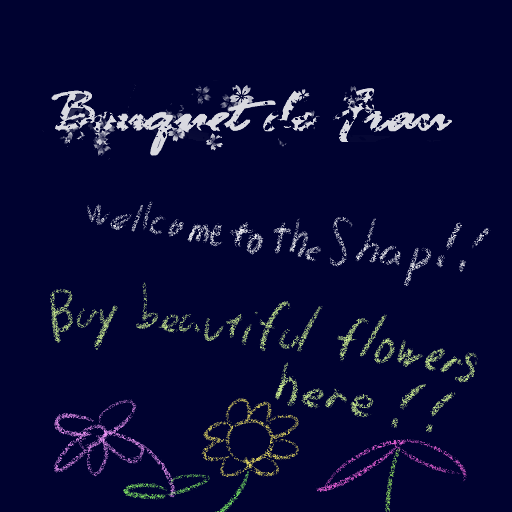 Bouquet de frau
wellcome to the Shap!!
Buy beautiful flowers
here!!